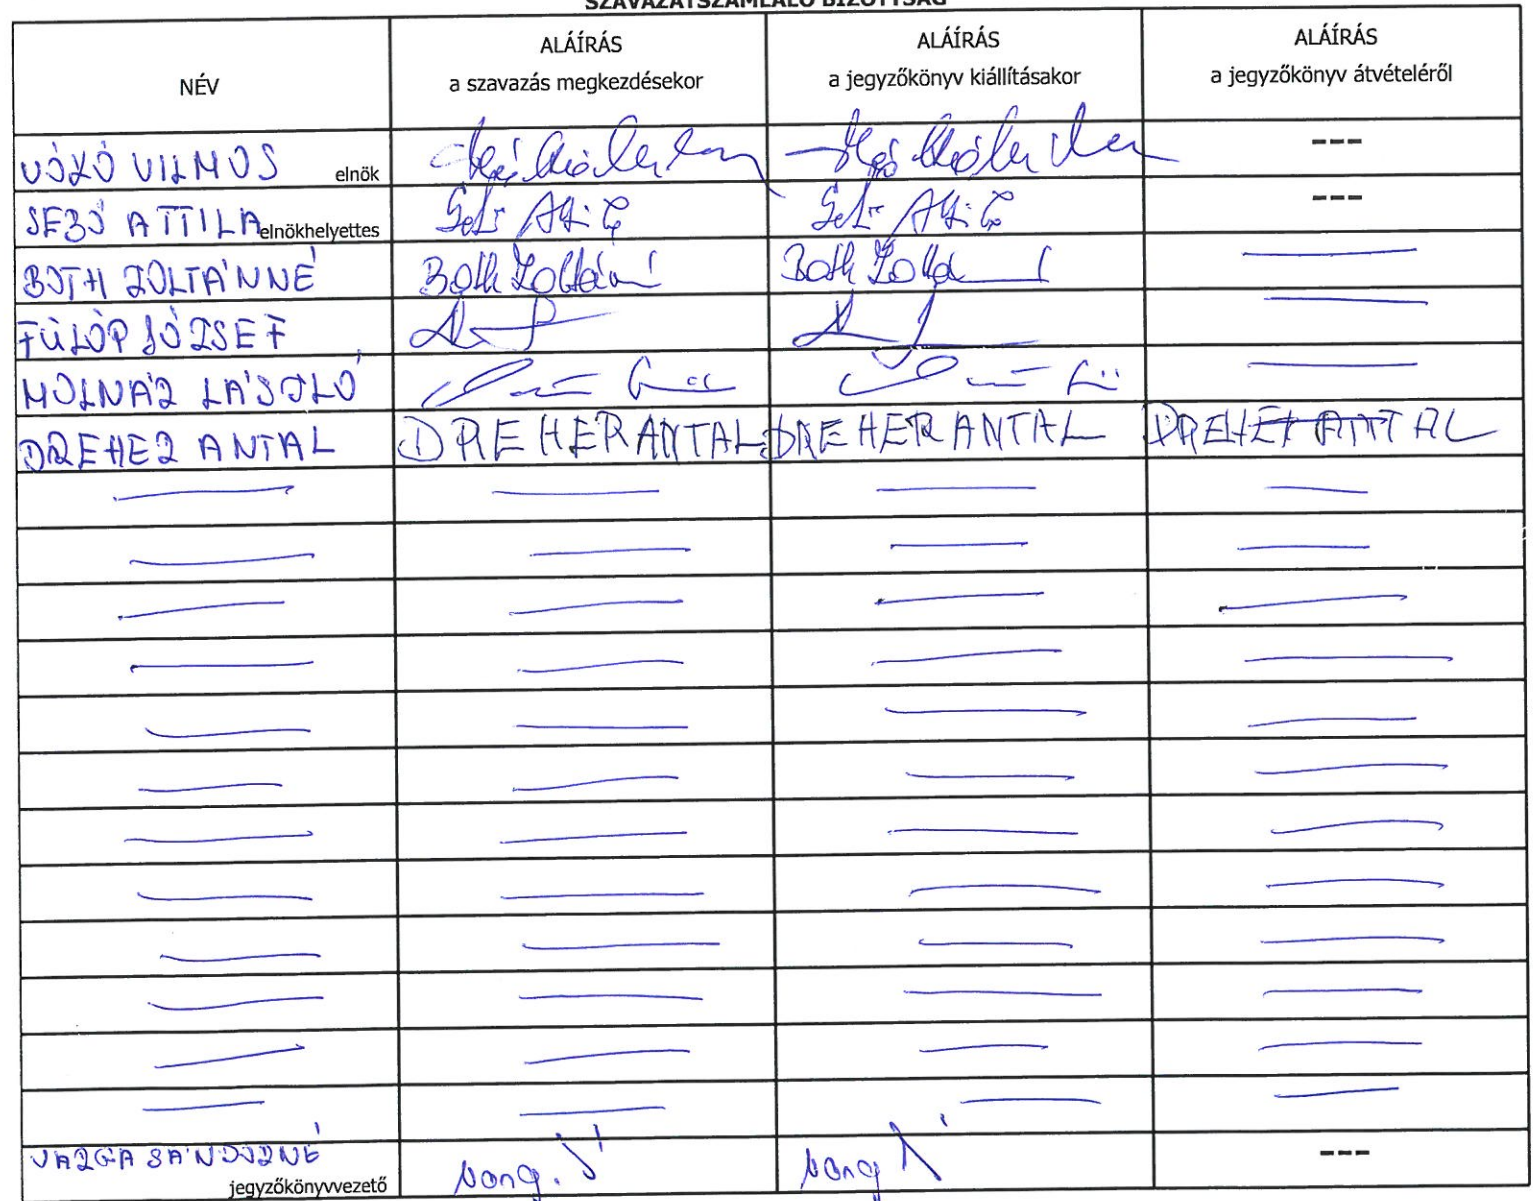 SZAVAZATSZÁMLÁLÓ BIZOTTSÁG
NÉV
ALÁÍRÁS
a szavazás megkezdésekor
ALÁÍRÁS
a jegyzőkönyv kiállításakor
ALÁÍRÁS
a jegyzőkönyv átvételéről
VILMOS elnök ---
SEBŐ ATTILA elnökhelyettes ---
BOTH ZOLTÁNNÉ Both Zoltánné Both
FÜLÖP JÓZSEF
MOLNÁR LÁSZLÓ
DREHER ANTAL DREHER ANTAL DREHER ANTAL DREHER ANTAL
VARGA SÁNDORNÉ
jegyzőkönyvvezető ---